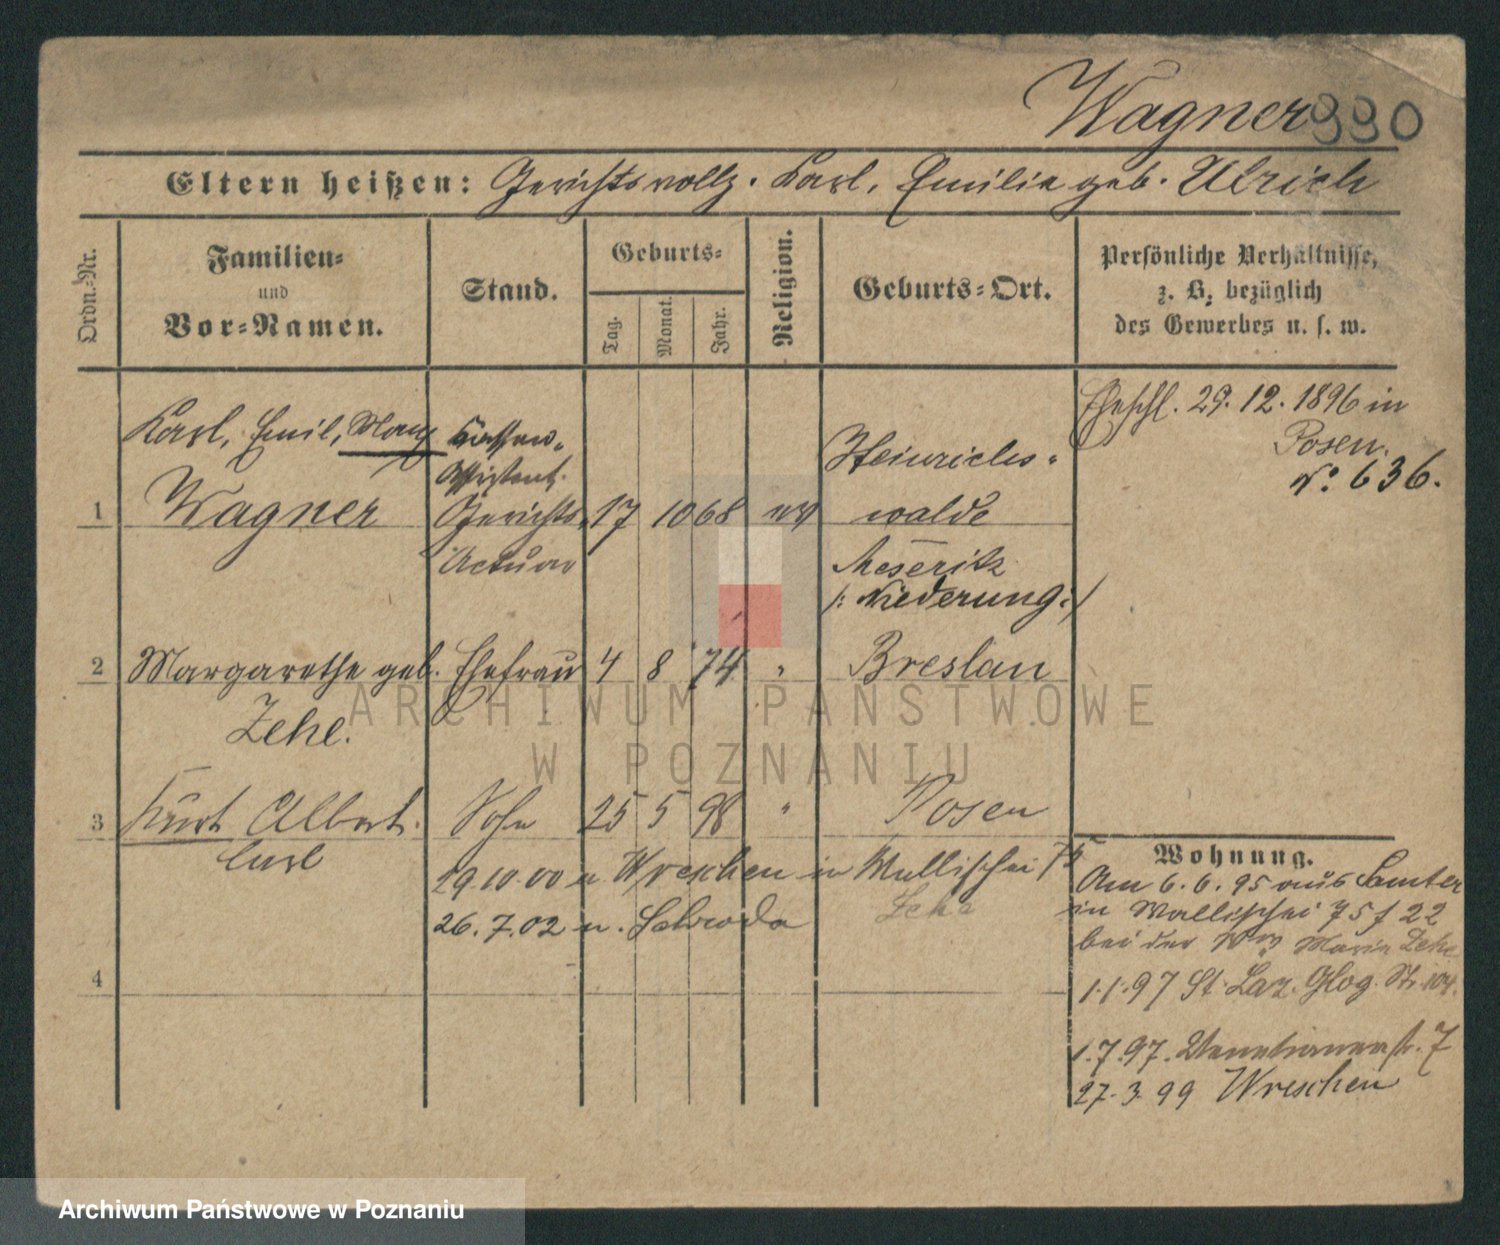 Wagner 990
Eltern heißen: Gerichtsvollz. Karl, Emilia geb. Ulrich
Ordn.-Nr.
Familien-
und
Vor-Namen.
Stand.
Geburts-
Tag.
Monat.
Jahr.
Religion.
Geburts-Ort.
Persönliche Verhältnisse,
z. B. bezüglich
des Gewerbes u. s. w.
Karl, Emil, Max
Kassen-
Assistent
Heinrichs-
Eheschl. 29.12.1896 in
Posen.
No. 636.
1 Wagner Gerichts- 17 10 68 ev walde
Actuar
Meseritz
/: Niederung :/
2 Margarethe geb. Ehefrau 4 8 74 " Breslau
Zehe.
3 Kurt Albert Sohn 25 5 98 " Posen
Carl
19.10.00 n Wreschen in Wallischei 75
Zehe
26.7.02 n. Schroda
4
Wohnung.
Am 6.6.95 aus Samter
in Wallischei 75 f 22
bei der Ww Marie Zehe
1.1.97 St. Laz. Glog. Str. 104.
1.7.97. Venetianerstr. 7
27.3.99 Wreschen
ARCHIWUM PAŃSTWOWE
W POZNANIU
Archiwum Państwowe w Poznaniu